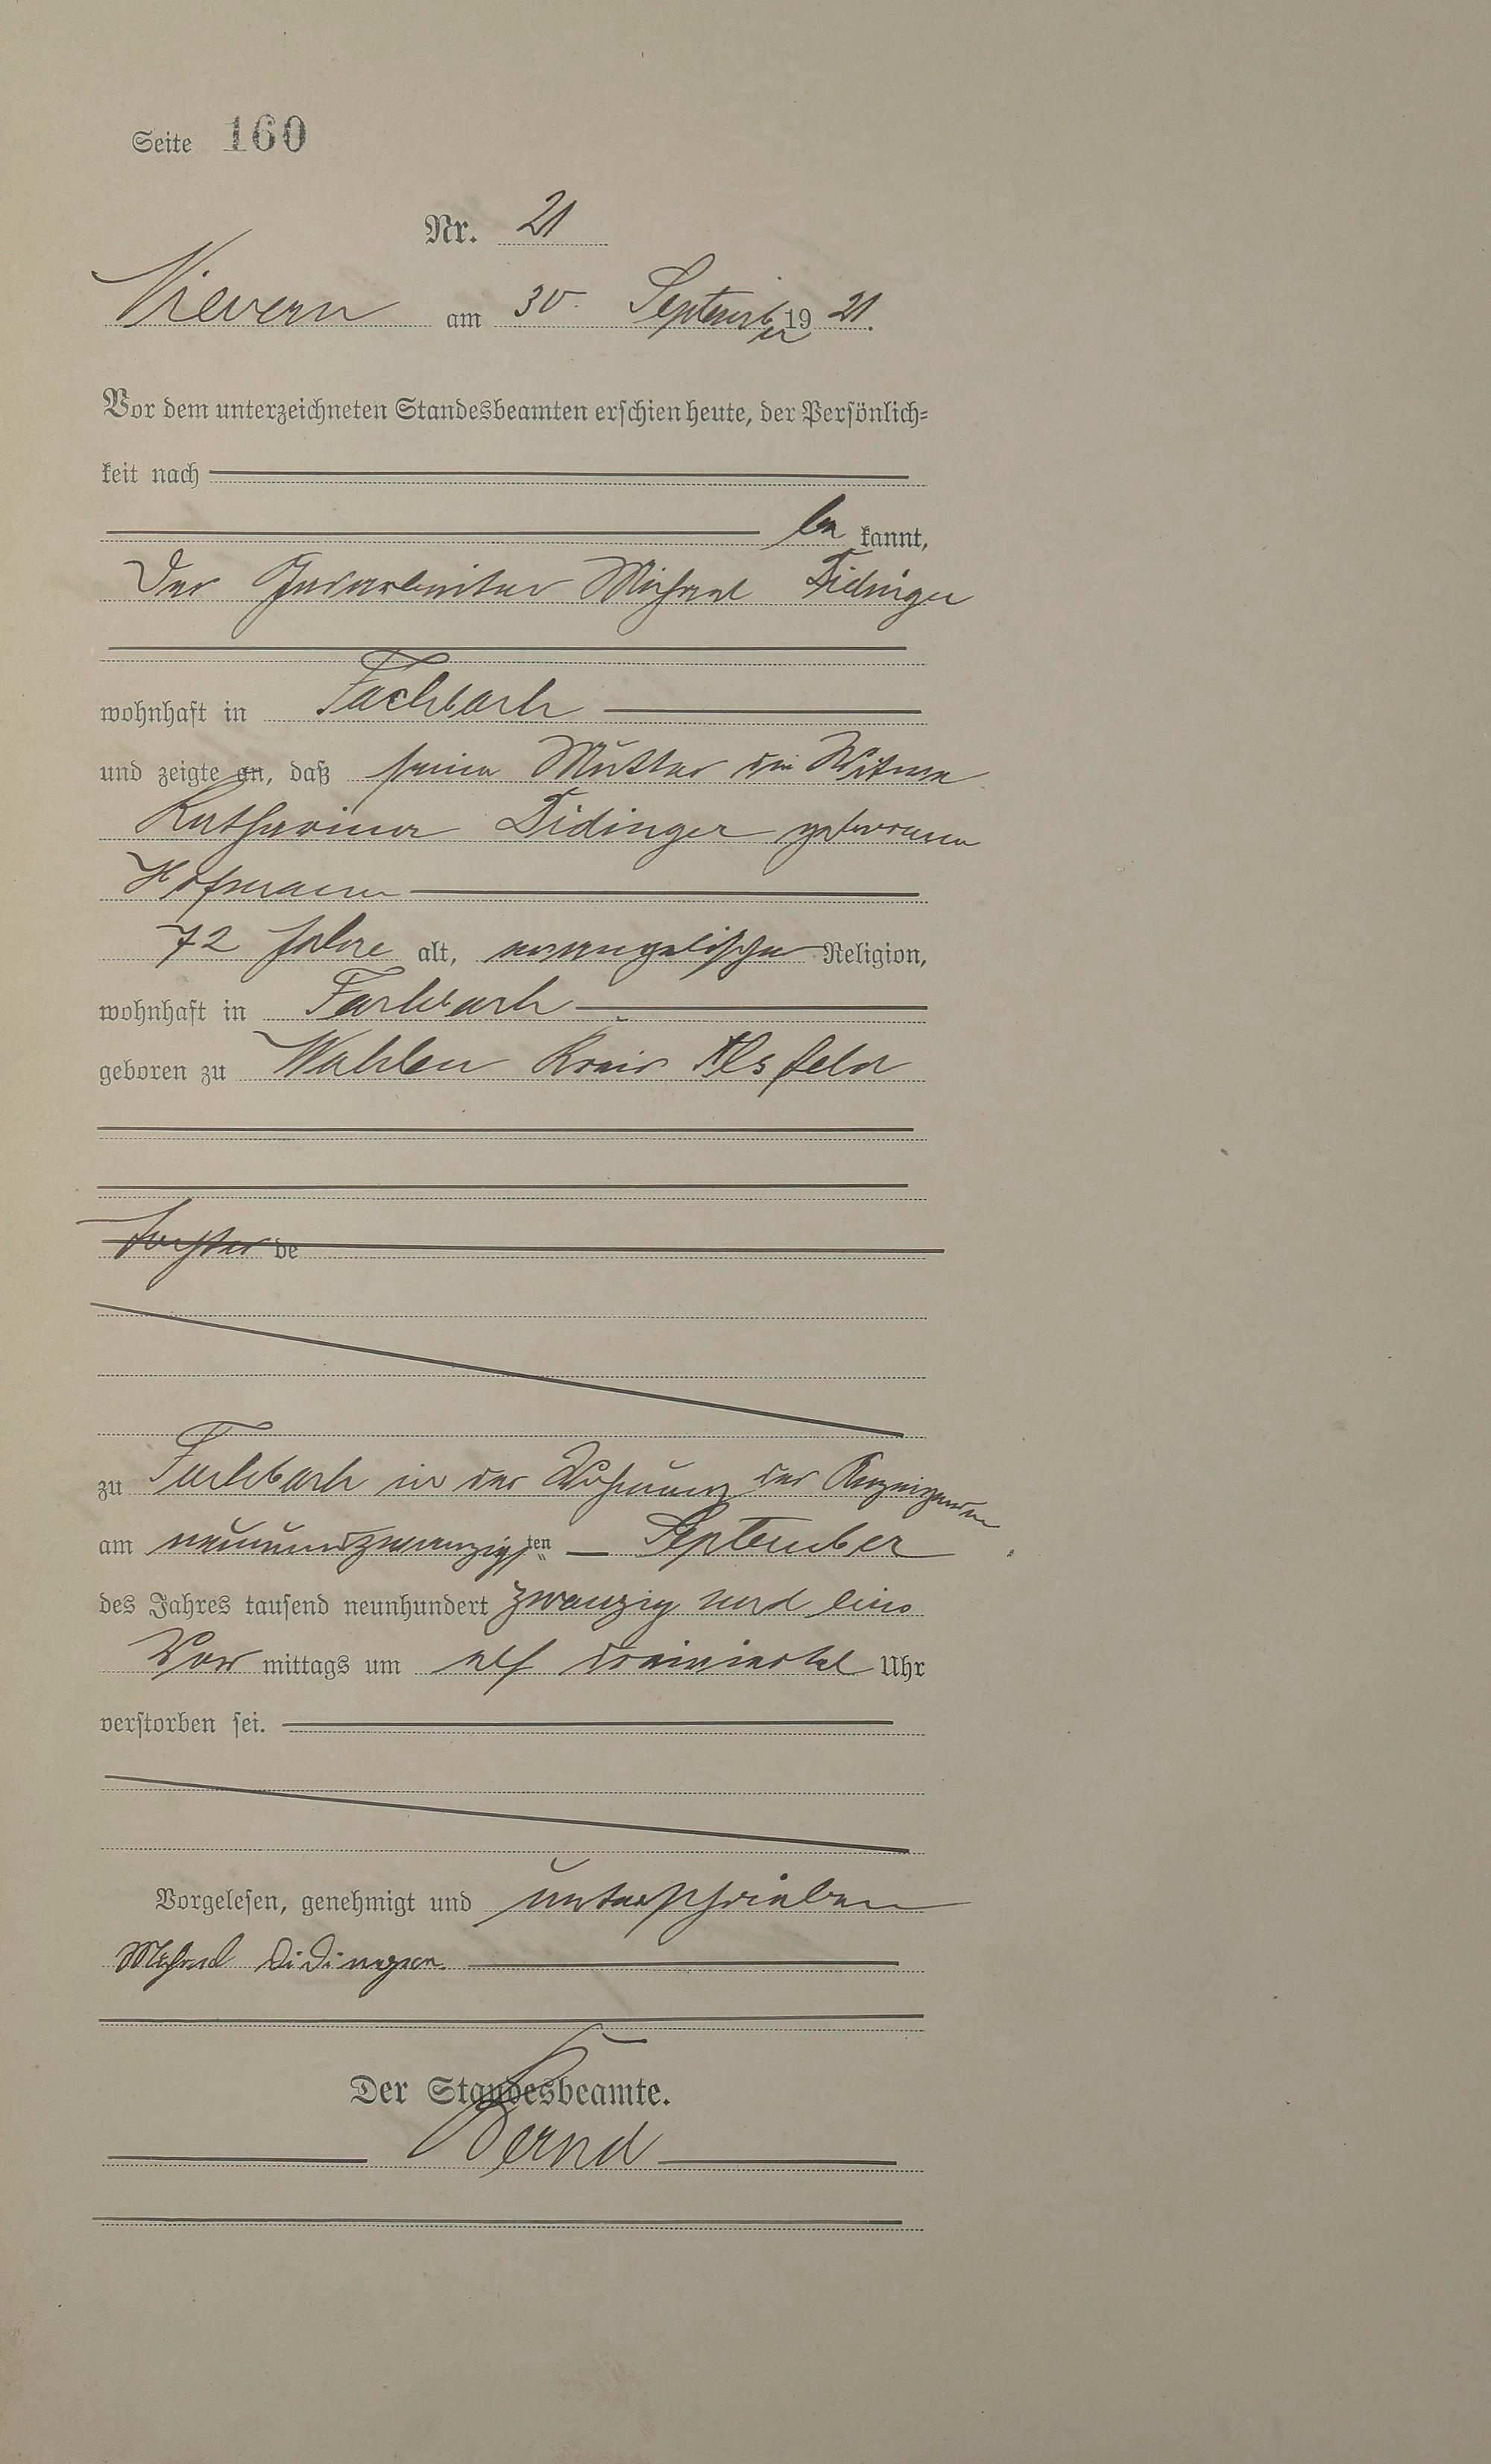 Seite 160
Nr. 21
Nievern am 30. September 1921.
Vor dem unterzeichneten Standesbeamten erschien heute, der Persönlich=
keit nach
be kannt,
Der Michael Didinger
wohnhaft in Fachbach
und zeigte an, daß seine Mutter die Witwe
Katharina Didinger geborene
Hofmann
72 Jahre alt, evangelischer Religion,
wohnhaft in Fachbach
geboren zu Wahlen Kreis Alsfeld
Tochter de
zu Fachbach in der Wohnung des Anzeigenden
am neunundzwanzigsten September
des Jahres tausend neunhundert zwanzig und eins
Vor mittags um elf dreiviertel Uhr
verstorben sei.
Vorgelesen, genehmigt und unterschrieben
Michael Didinger.
Der Standesbeamte.
Bernd